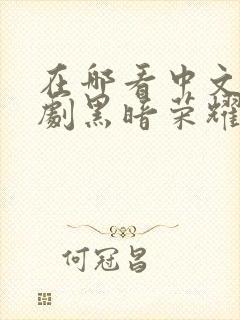 在那看中文
劇黑暗荣耀
何冠昌